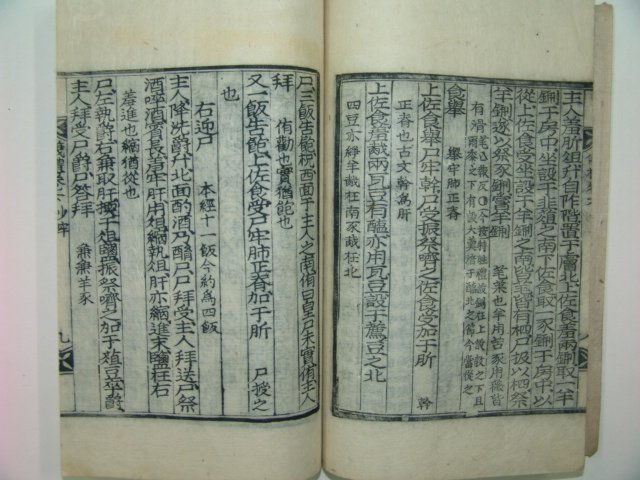 主人羞肵俎升自阼階置于膚北上佐食羞兩鉶取一羊
鉶于房中坐設于韭菹之南下佐食取一豕鉶于房中以
從上佐食受坐設于羊鉶之南皆芼皆有柶尸扱以柶祭
羊鉶遂以祭豕鉶嘗羊鉶 芼菜也羊用苦豕用薇皆
有滑
食擧 擧牢肺正脊
上佐食擧尸牢幹尸受振祭嚌之佐食受加于肵 幹
正脅也古文幹爲肝
上佐食羞胾兩瓦豆有醢亦用瓦豆設于薦豆之北
四豆亦綪羊胾在南豕胾在北
尸三飯告飽祝西面于主人之南侑曰皇尸未實侑主人
拜 侑勸也實猶飽也
又一飯告飽上佐食受尸牢肺正脊加于肵 尸授之
也
右迎尸 本經十一飯今約爲四飯
主人降洗爵升北面酌酒乃酳尸尸拜受主人拜送尸祭
酒啐酒賓長羞牢肝用俎縮執俎肝亦縮進末鹽在右
羞進也縮猶從也
尸左執爵右兼取肝㨎于俎鹽振祭嚌之加于菹豆卒爵
主人拜受尸爵尸答拜 兼兼羊豕
九